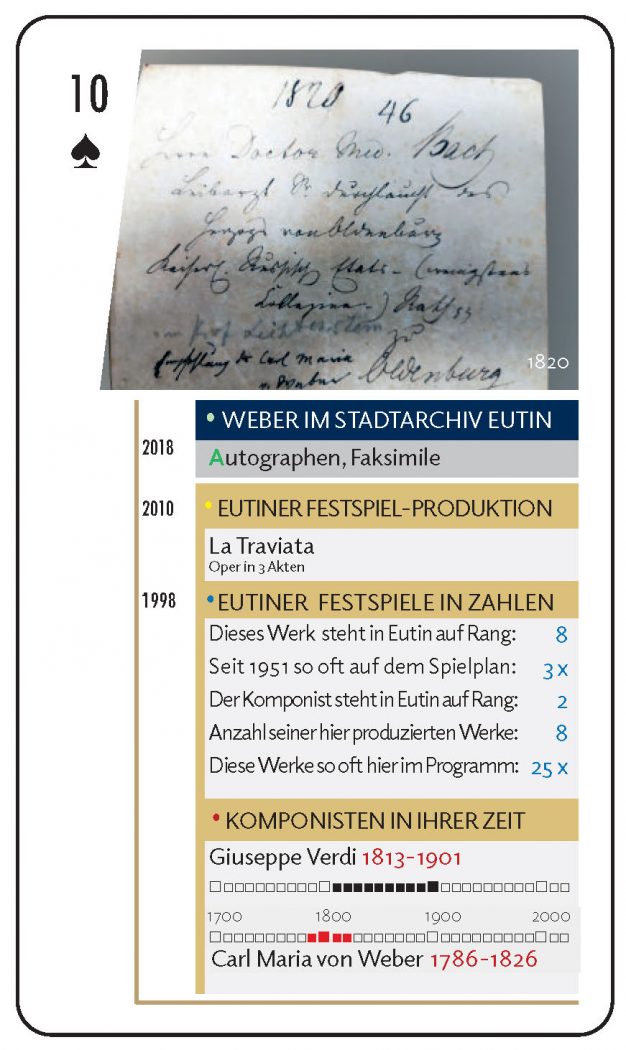 10
1820 46
Herrn Doctor Med. Bach
Leibarzt Sr. Durchlaucht des
Herzogs von Oldenburg
Kaiserl. Russisch Etats- (wenigstens
Collegien-) Rath
Prof Lichtenstein zu
Carl Maria
v Weber Oldenburg
1820
• WEBER IM STADTARCHIV EUTIN
2018
Autographen, Faksimile
2010 • EUTINER FESTSPIEL-PRODUKTION
La Traviata
Oper in 3 Akten
1998 • EUTINER FESTSPIELE IN ZAHLEN
Dieses Werk steht in Eutin auf Rang: 8
Seit 1951 so oft auf dem Spielplan: 3 x
Der Komponist steht in Eutin auf Rang: 2
Anzahl seiner hier produzierten Werke: 8
Diese Werke so oft hier im Programm: 25 x
• KOMPONISTEN IN IHRER ZEIT
Giuseppe Verdi 1813-1901
1700 1800 1900 2000
Carl Maria von Weber 1786-1826